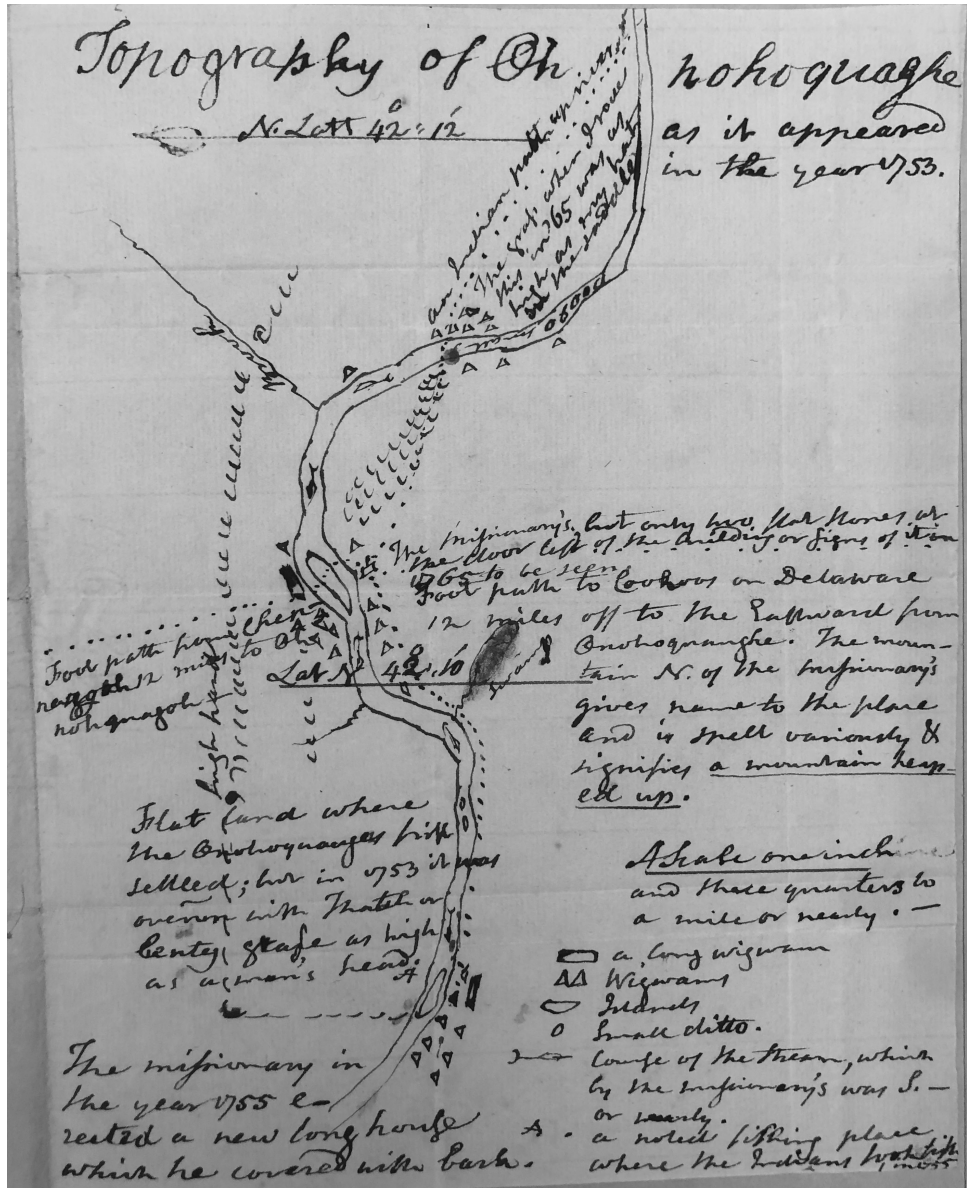 Topography of Oh nohoquaghe
N. Latt 42°: 12'
as it appeared
in the year 1753.
an Indian path up river
The grass when I rode
this in 65 was as
high as my hat
in the saddle
The missionary's, but only two flat stones at
the door left of the building or signs of it in
1765 to be seen.
Foot path to Cookoos on Delaware
12 miles off to the Eastward from
Onohoquaughe. The moun-
tain N. of the missionary's
gives name to the place
and is spelt variously &
signifies a mountain heap-
ed up.
Foot path from Chen
nagoh 12 miles to O
nohquagoh
Lat N 42°.10'
swamp
high land
Flat land where
the Onohoquages first
settled; but in 1753 it was
overrun with Thatch or
grass as high
as a man's head.
A
A Scale one inch
and three quarters to
a mile or nearly. —
a long wigwam
Wigwams
Islands
Small ditto.
Course of the stream, which
by the missionary's was S. —
or nearly.
A. a noted fishing place
where the Indians took fish
The missionary in
the year 1755 e-
rected a new long house
which he covered with bark.